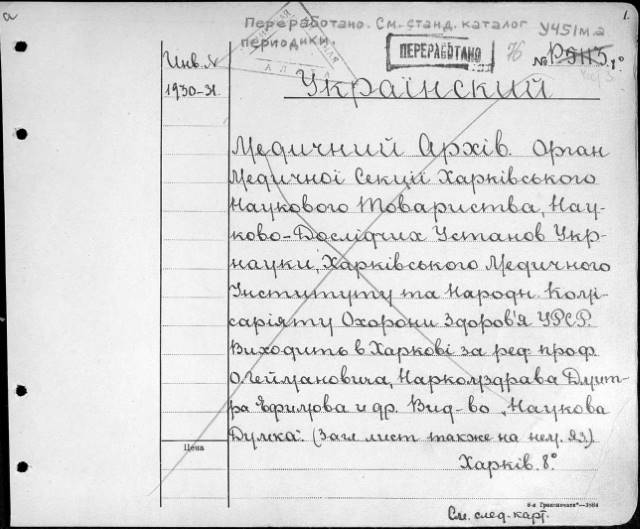 а
1.
Переработано. См. станд. каталог
периодики.
У451м.а
ПЕРЕРАБОТАНО
76
№ Р9113 8°
Инв. №
1930-31.
Українский
Медичний Архів. Орган
Медичної Секції Харківського
Наукового Товариства, Нау-
ково-Дослідчих Установ Укр-
науки, Харківського Медичного
Інституту та Народн. Комі-
саріяту Охорони Здоров'я УРСР.
Виходить в Харкові за ред. проф.
О. Геймановича, Наркомздрава Дмит-
ра Єфимова и др. Вид-во „Наукова
Думка". (Загл. лист также на нем. яз.)
Цена
Харків. 8°
См. след. карт.